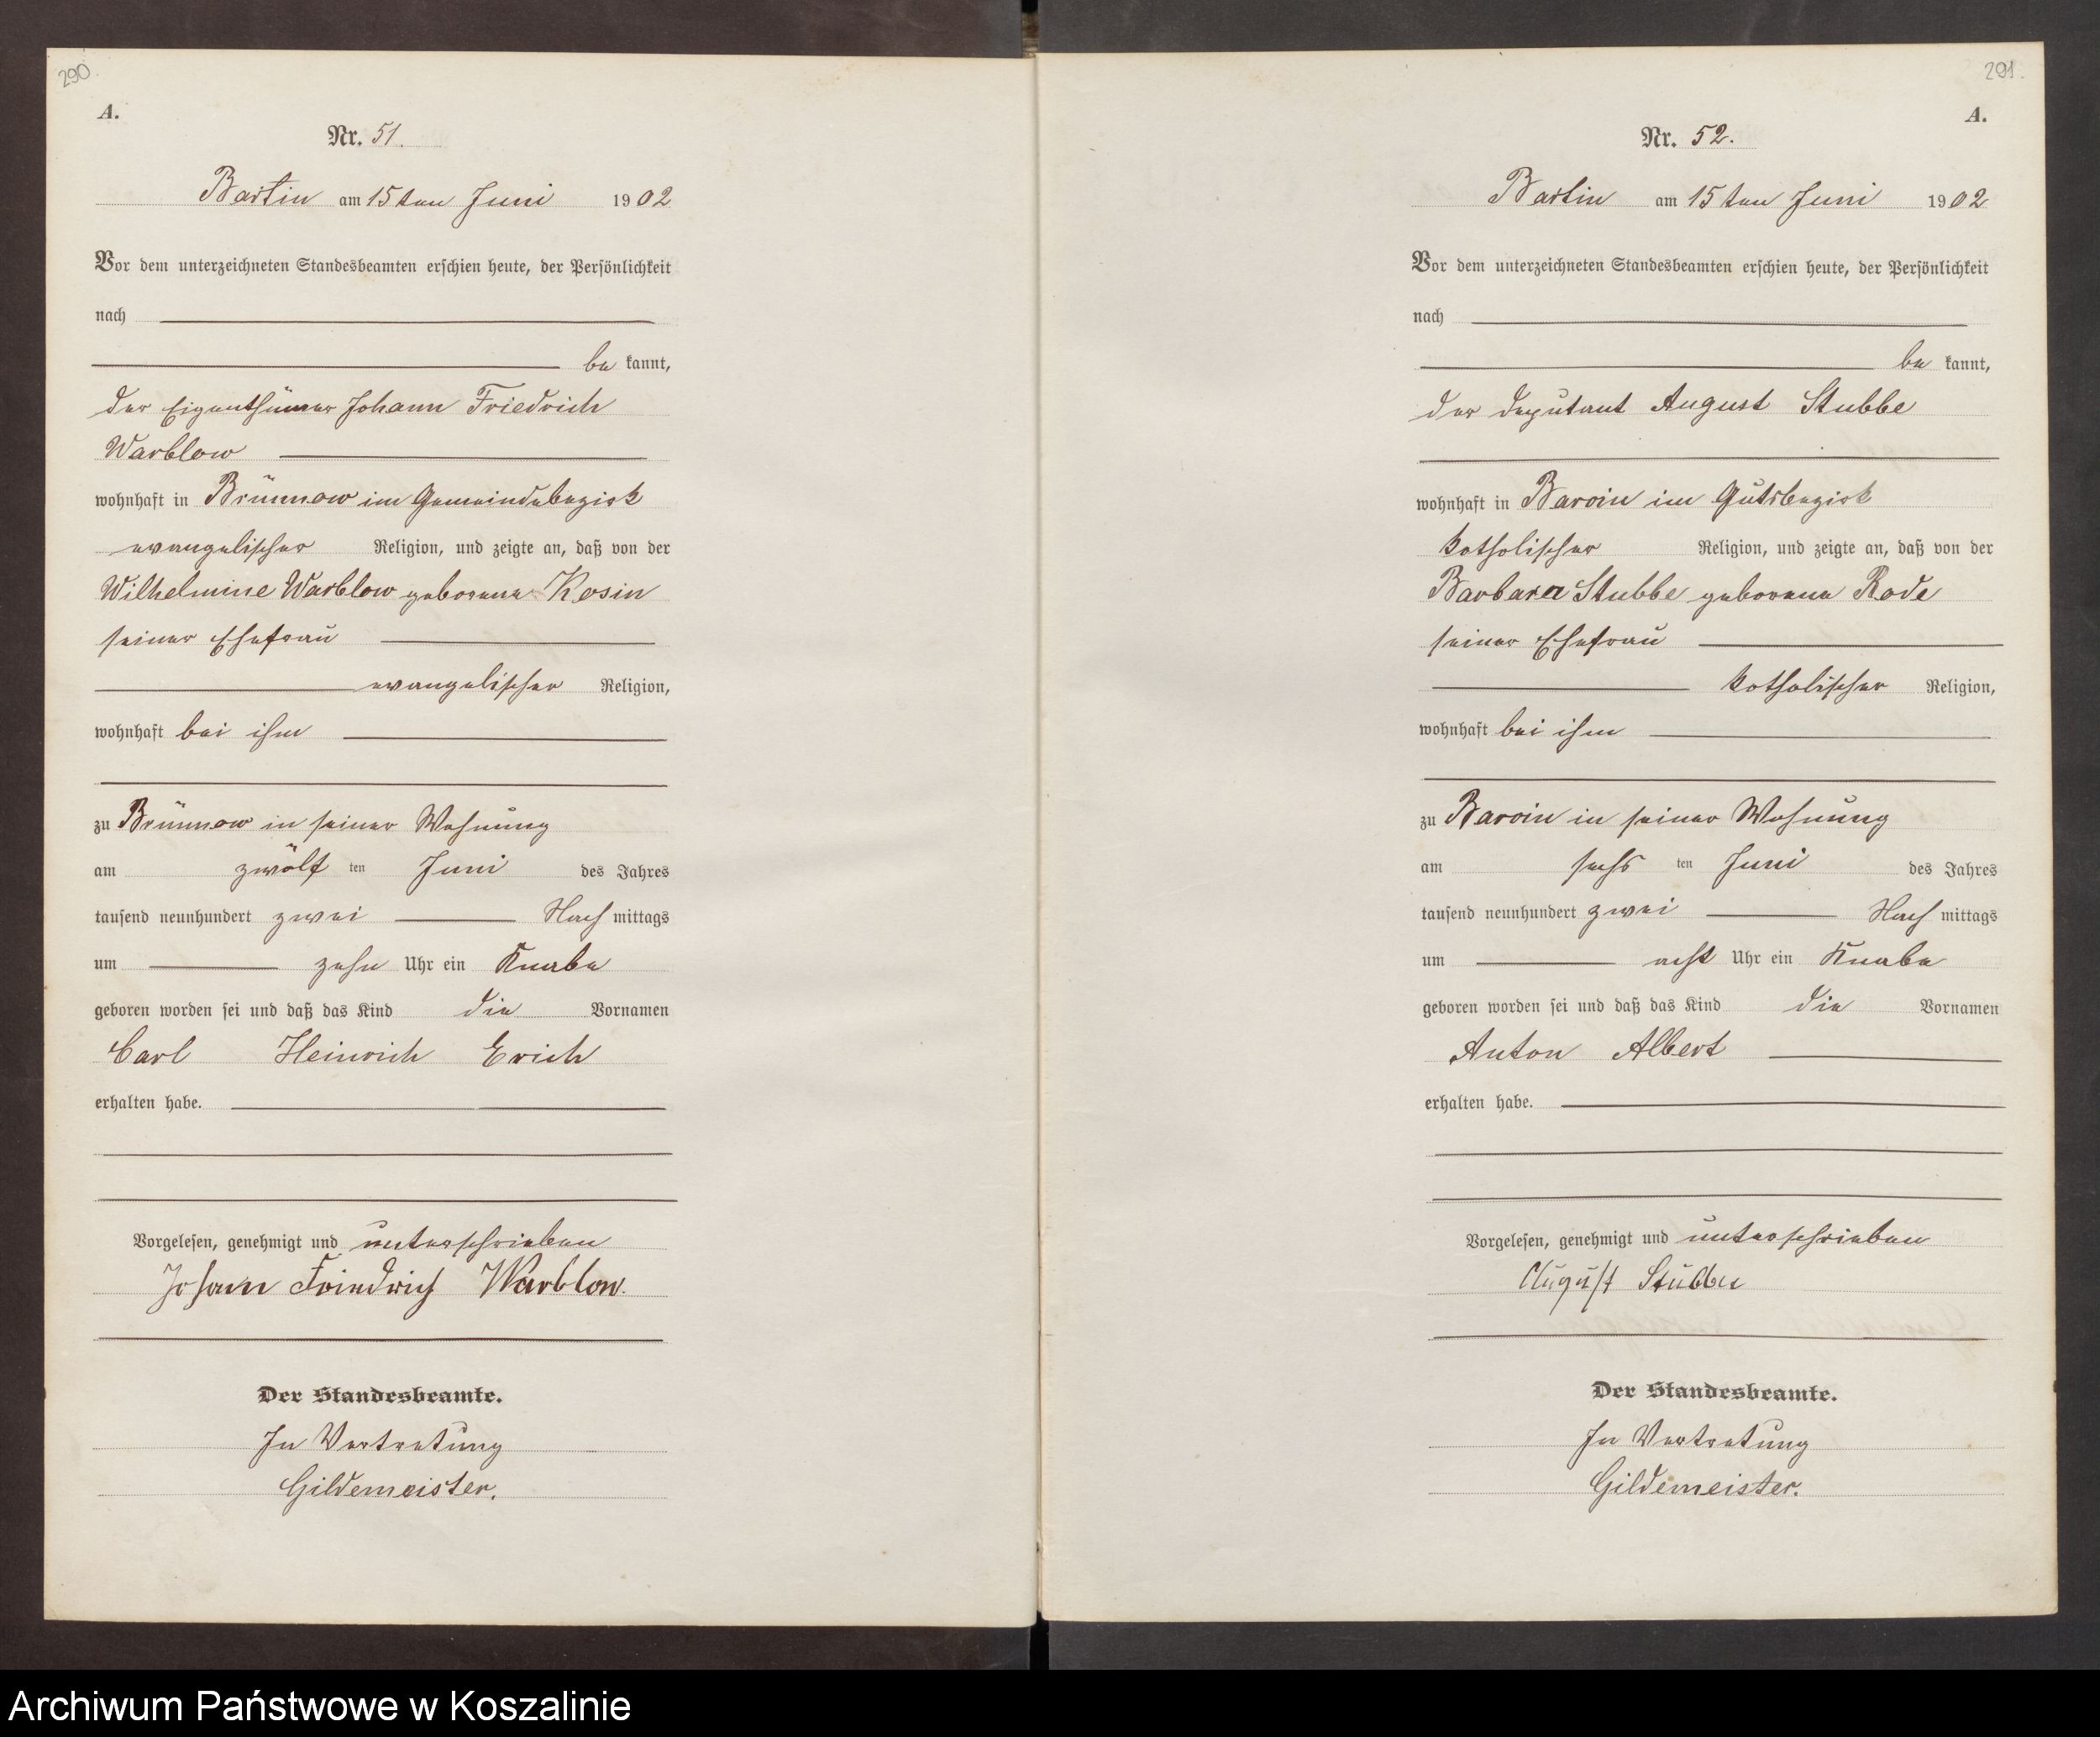 290.
A.
Nr. 51.
Bartin am 15ten Juni 1902
Vor dem unterzeichneten Standesbeamten erschien heute, der Persönlichkeit
nach
be kannt,
der Eigenthümer Johann Friedrich
Warblow
wohnhaft in Brünnow im Gemeindebezirk
evangelischer Religion, und zeigte an, daß von der
Wilhelmine Warblow geborene Kosin
seiner Ehefrau
evangelischer Religion,
wohnhaft bei ihm
zu Brünnow in seiner Wohnung
am zwölf ten Juni des Jahres
tausend neunhundert zwei Nach mittags
um zehn Uhr ein Knabe
geboren worden sei und daß das Kind die Vornamen
Carl Heinrich Erich
erhalten habe.
Vorgelesen, genehmigt und unterschrieben
Johann Friedrich Warblow.
Der Standesbeamte.
In Vertretung
Gildemeister.
291.
A.
Nr. 52.
Bartin am 15ten Juni 1902
Vor dem unterzeichneten Standesbeamten erschien heute, der Persönlichkeit
nach
be kannt,
der Deputant August Stubbe
wohnhaft in Barvin im Gutsbezirk
katholischer Religion, und zeigte an, daß von der
Barbara Stubbe geborene Rode
seiner Ehefrau
katholischer Religion,
wohnhaft bei ihm
zu Barvin in seiner Wohnung
am sechs ten Juni des Jahres
tausend neunhundert zwei Nach mittags
um acht Uhr ein Knabe
geboren worden sei und daß das Kind die Vornamen
Anton Albert
erhalten habe.
Vorgelesen, genehmigt und unterschrieben
August Stubbe
Der Standesbeamte.
In Vertretung
Gildemeister.
Archiwum Państwowe w Koszalinie